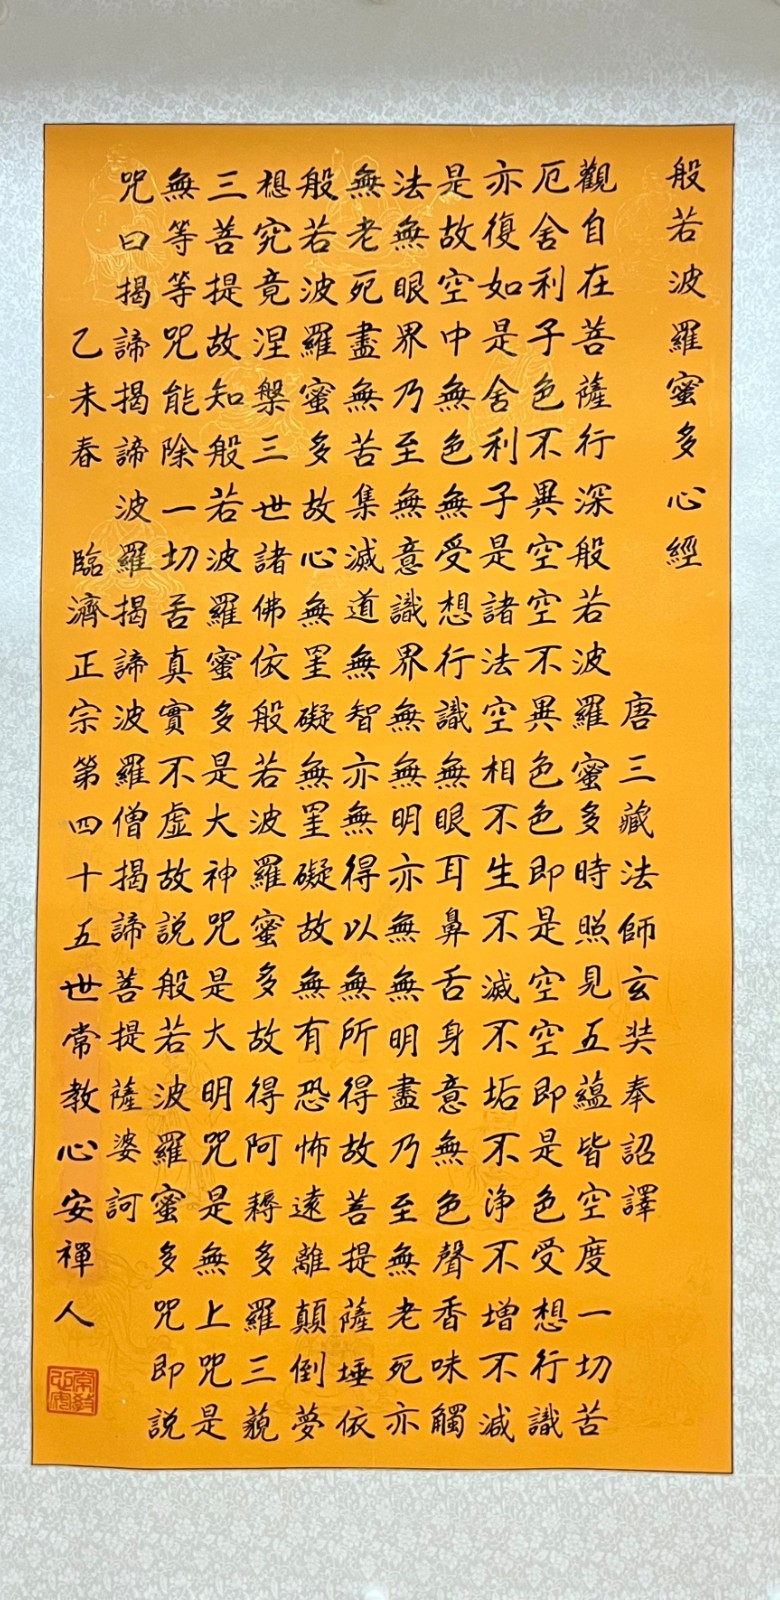 般若波羅蜜多心經
唐三藏法師玄奘奉詔譯
觀自在菩薩行深般若波羅蜜多時照見五蘊皆空度一切苦
厄舍利子色不異空空不異色色即是空空即是色受想行識
亦復如是舍利子是諸法空相不生不滅不垢不净不增不減
是故空中無色無受想行識無眼耳鼻舌身意無色聲香味觸
法無眼界乃至無意識界無無明亦無無明盡乃至無老死亦
無老死盡無苦集滅道無智亦無得以無所得故菩提薩埵依
般若波羅蜜多故心無罣礙無罣礙故無有恐怖遠離顛倒夢
想究竟涅槃三世諸佛依般若波羅蜜多故得阿耨多羅三藐
三菩提故知般若波羅蜜多是大神咒是大明咒是無上咒是
無等等咒能除一切苦真實不虛故説般若波羅蜜多咒即説
咒曰揭諦揭諦波羅揭諦波羅僧揭諦菩提薩婆訶
乙未春 臨濟正宗第四十五世常教心安禪人
常教心安